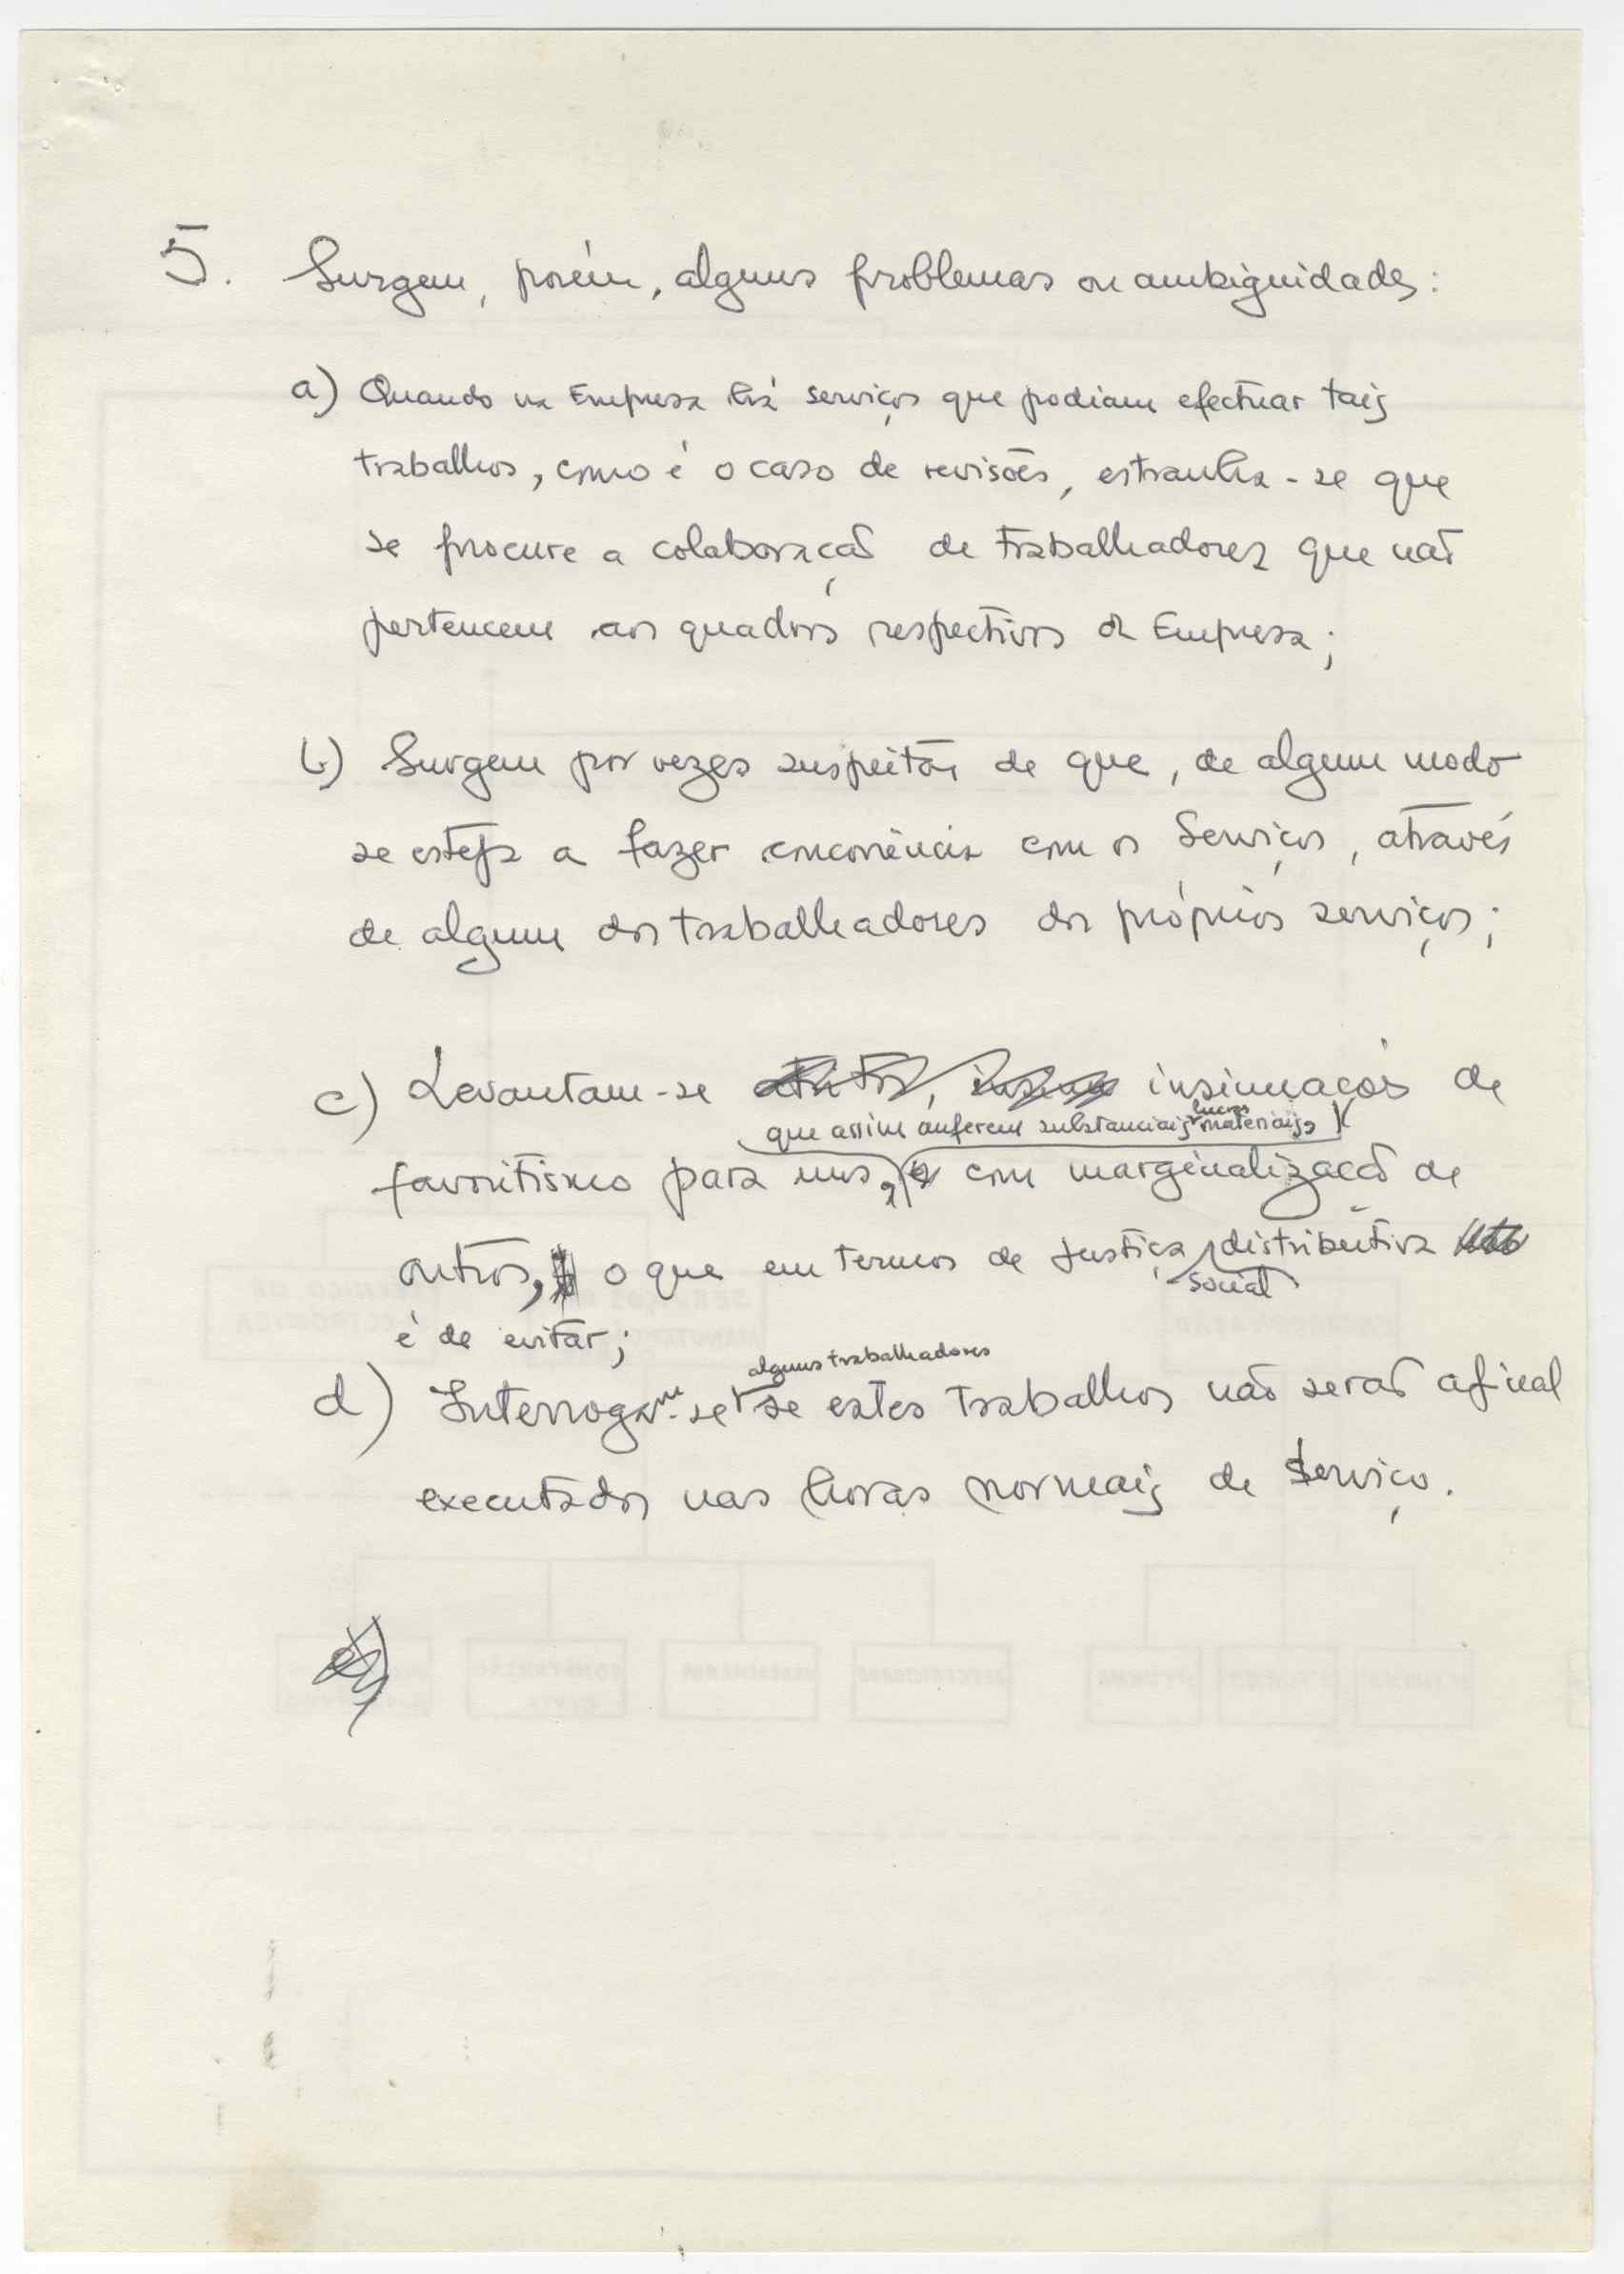 5. Surgem, porém, alguns problemas ou ambiguidades:
a) Quando na Empresa há serviços que podiam efectuar tais
trabalhos, como é o caso de revisões, estranha-se que
se procure a colaboração de trabalhadores que não
pertencem aos quadros respectivos da Empresa;
b) Surgem por vezes suspeitas de que, de algum modo
se esteja a fazer concorrência com os Serviços, através
de algum dos trabalhadores dos próprios serviços;
c) Levantam-se insinuações de
que assim auferem substanciais lucros materiais,
favoritismo para uns, com marginalização de
outros, o que em termos de justiça distributiva
social
é de evitar;
alguns trabalhadores
d) Interrogam-se se estes trabalhos não serão afinal
executados nas horas normais de serviço.